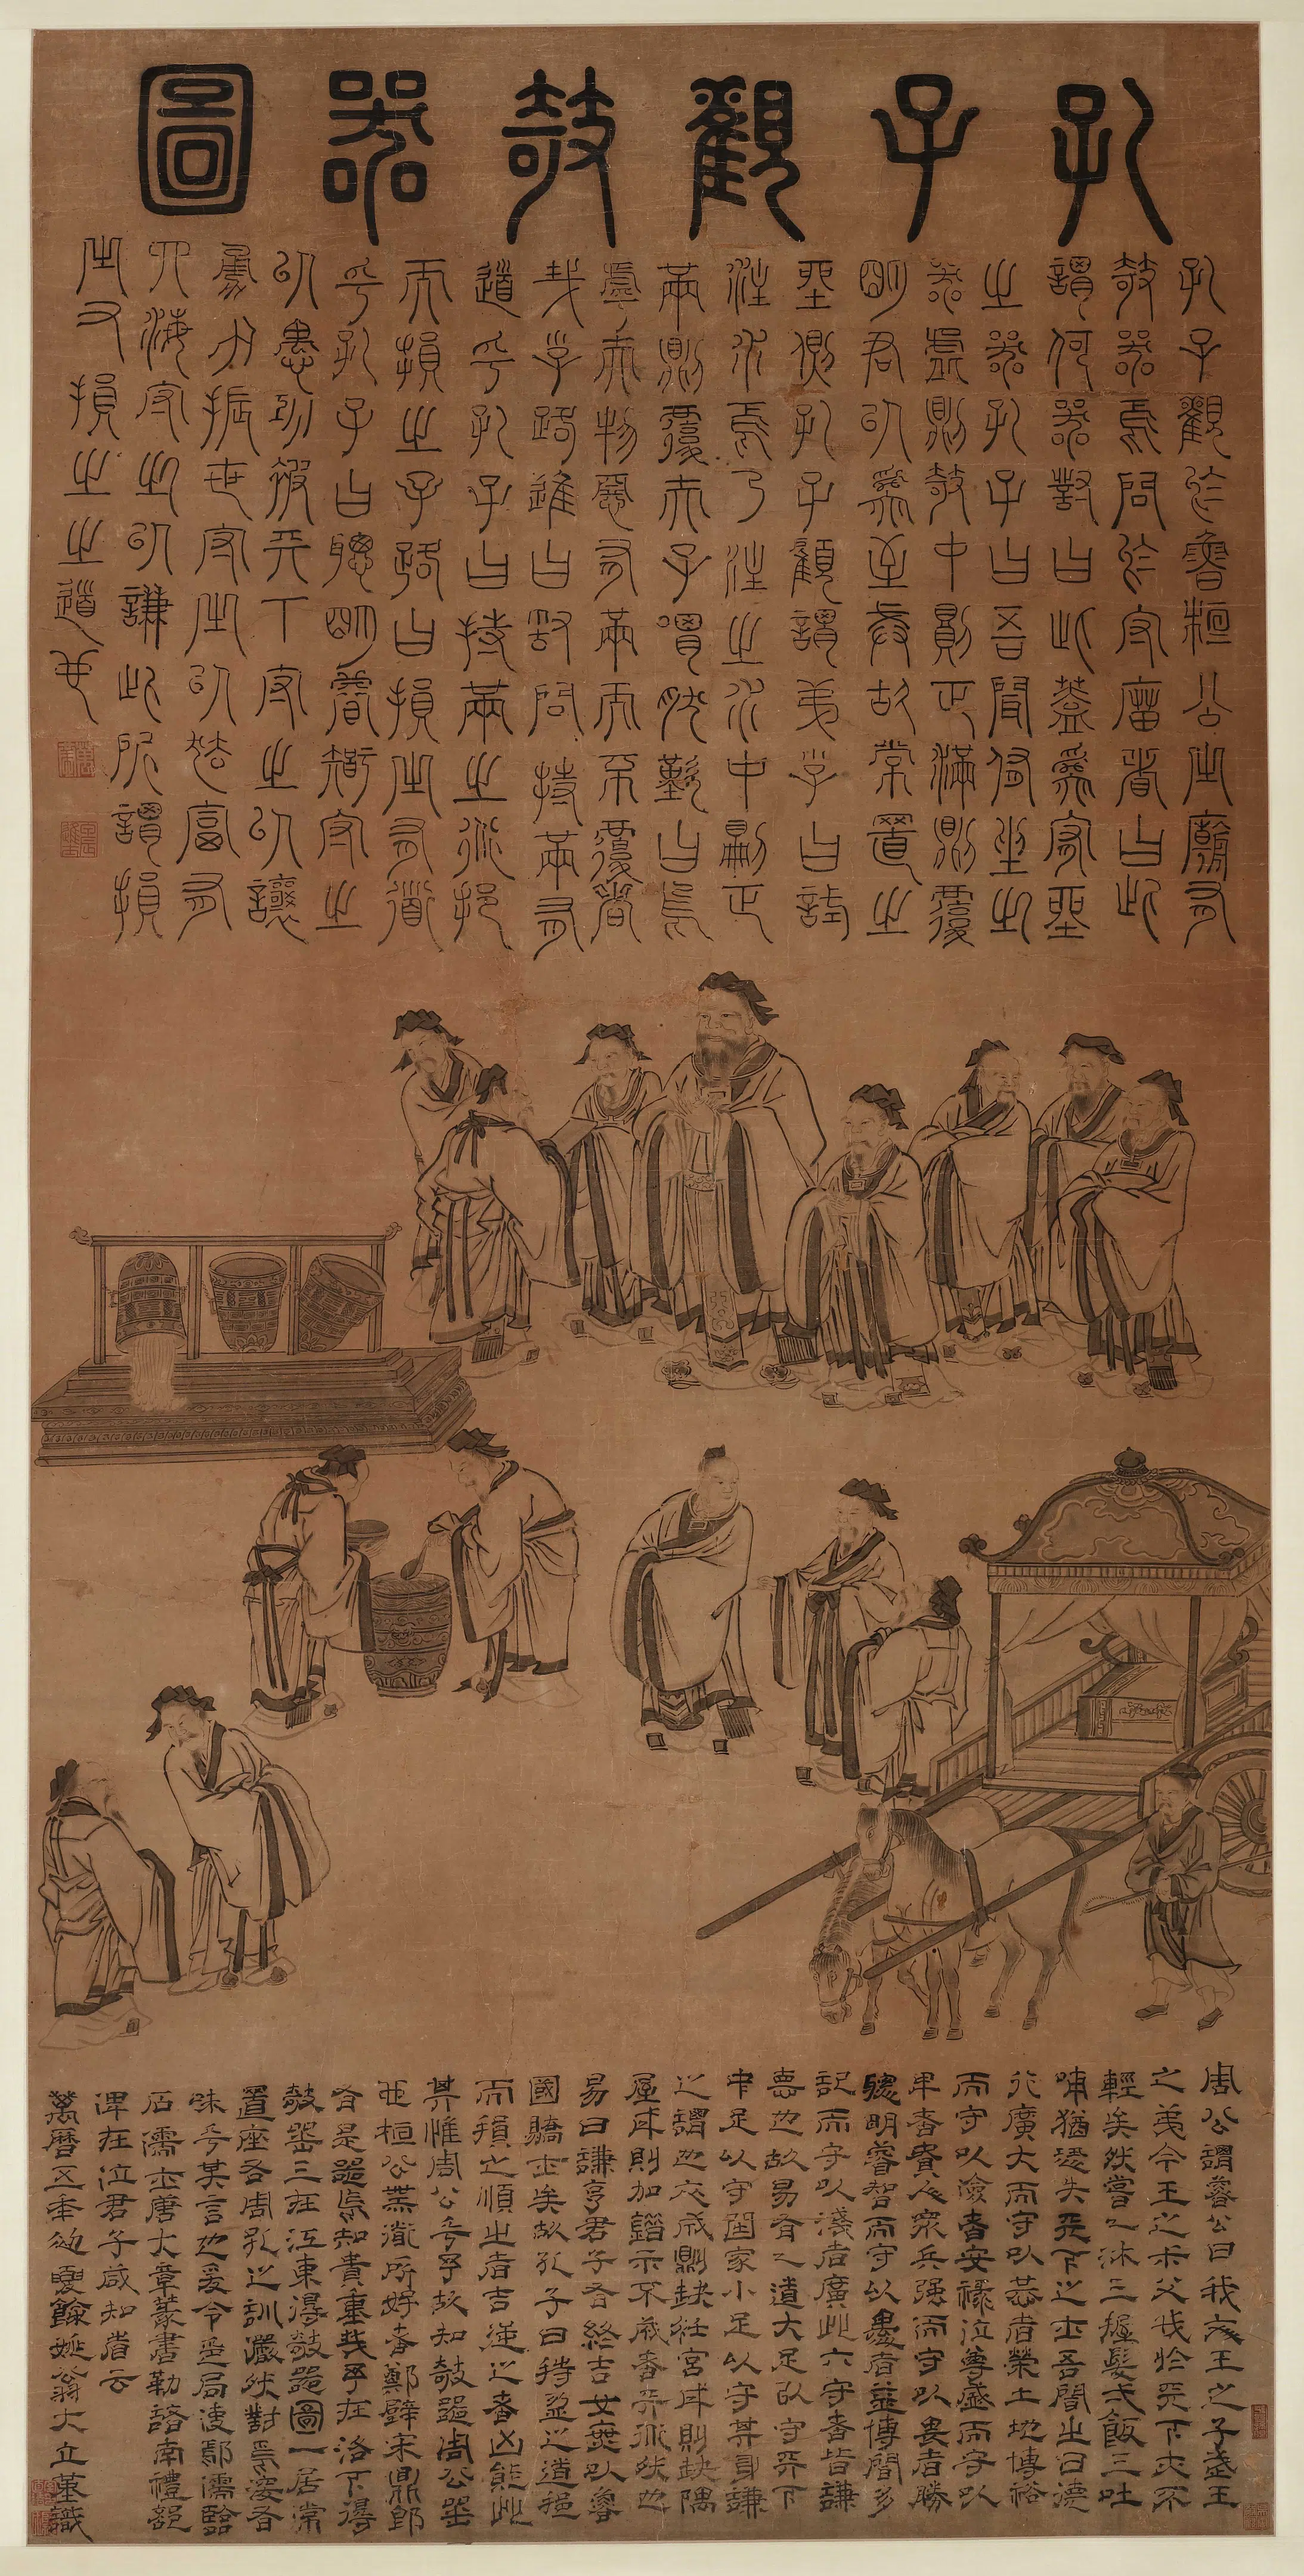 孔子觀攲器圖
孔子觀於魯桓公之廟有
攲器焉問於守廟者曰此
謂何器對曰此蓋為宥坐
之器孔子曰吾聞宥坐之
器虛則攲中則正滿則覆
明君以為至誠故常置之
坐側孔子顧謂弟子曰試
注水焉乃注之水中則正
滿則覆夫子喟然歎曰嗚
呼夫物惡有滿而不覆者
哉子路進曰敢問持滿有
道乎孔子曰持滿之術挹
而損之子路曰損之有道
乎孔子曰聰明睿智守之
以愚功被天下守之以讓
勇力振世守之以怯富有
四海守之以謙此所謂損
之又損之之道也
周公謂魯公曰我文王之子武王
之弟今王之叔父我於天下亦不
輕矣然嘗一沐三握髮一飯三吐
哺猶恐失天下之士吾聞之曰德
行廣大而守以恭者榮土地博裕
而守以儉者安祿位尊盛而守以
卑者貴人衆兵强而守以畏者勝
聰明睿智而守以愚者益博聞多
記而守以淺者廣此六守者皆謙
德也故易有一道大足以守天下
中足以守國家小足以守其身謙
之謂也衣成則缺衽宮成則缺隅
屋成則加錯示不成者天道然也
易曰謙亨君子有終吉女無以魯
國驕士矣故孔子曰持盈之道挹
而損之順之者吉逆之者凶能此
其惟周公乎予故知攲器周公器
也桓公所好者鄭璧宋鼎即
有是器焉知貴重哉予在洛下得
攲器三在江東得攲器圖一居常
置座右周孔之訓儼然對焉
味乎其言也爰令
石濡士唐大章篆書勒諸南禮部
俾在位君子咸知省云
萬曆五年餘姚翁大立堇識